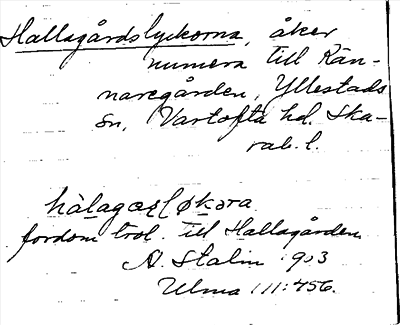 Hallagårdslyckorna, åker
numera till Rän-
naregården, Yllestads
sn, Vartofta hd. Ska-
rab. l.
hàlagæꞎ[økɔra
fordom trol. till Hallagården
A. Stalin 1903
Ulma 111:456.